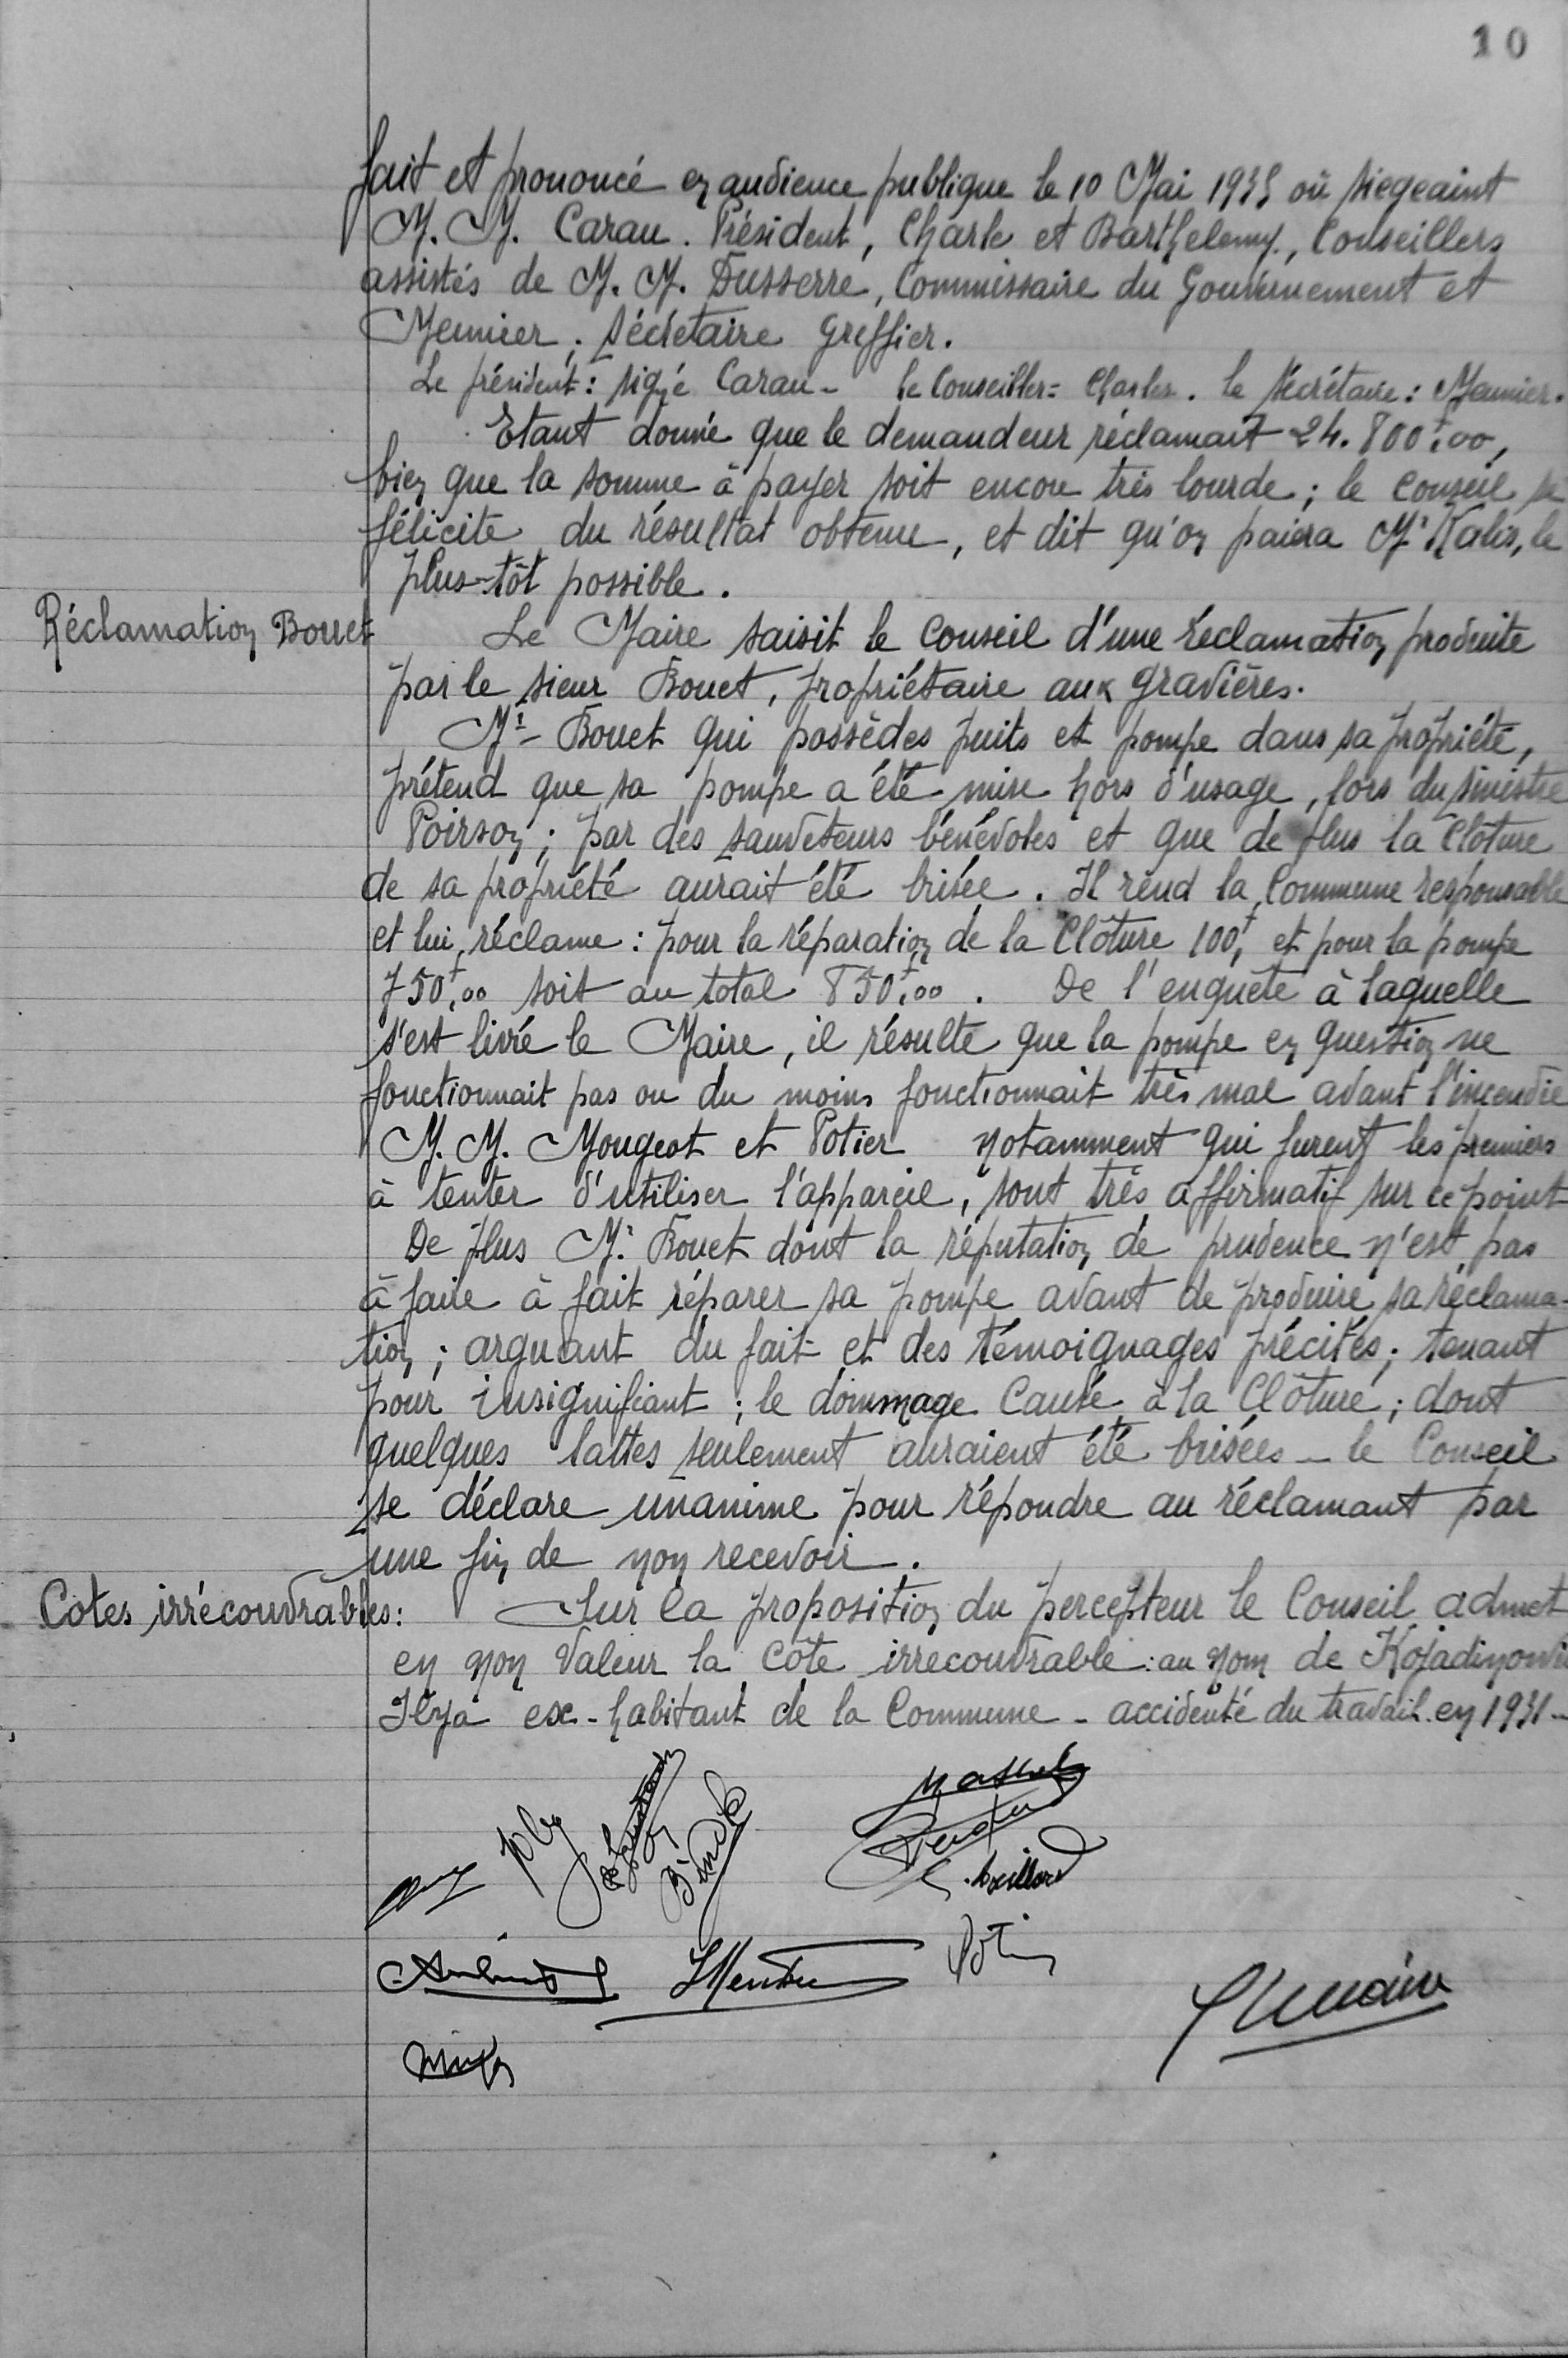 10
fait et prononcé en audience publique le 10 Mai 1935 où siegeaint
M. M. Carau. Président, Charle et Barthelemy, Conseillers
assistés de M. M. Dusserre, Commissaire du Gouvernement et
Meunier ; Sécrétaire Greffier.
Le président : signé Carau - le Conseiller = Charles. le Sécrétaire : Meunier.
Etant donné que le demandeur réclamait 24.800f,00,
bien que la somme à payer soit encore très lourde ; le Conseil se
félicite du résultat obtenu, et dit qu'on paiera Mr Kalis, le
plus-tôt possible.
Réclamation Bouet
Le Maire saisit le Conseil d'une réclamation produite
par le sieur Bouet, propriétaire aux gravières.
Mr Bouet qui possèdes puits et pompe dans sa propriété,
prétend que sa pompe a été mise hors d'usage, lors du sinistre
Poirson ; par des sauveteurs bénévoles et que de plus la Clôture
de sa propriété aurait été brisée. Il rend la Commune responsable
et lui réclame : pour la réparation de la Clôture 100f, et pour la pompe
750f,00 soit au total 850f,00. De l'enquête à laquelle
s'est livré le Maire, il résulte que la pompe en question ne
fonctionnait pas ou du moins fonctionnait très mal avant l'incendie
M. M. Mougeot et Potier notamment qui furent les premiers
à tenter d'utiliser l'appareil, sont très affirmatif sur ce point
De plus Mr Bouet dont la réputation de prudence n'est pas
à faire à fait réparer sa pompe avant de produire sa réclama-
tion ; arguant du fait et des témoignages précités ; tenant
pour insignifiant ; le dommage Causé à la Clôture ; dont
quelques lattes seulement auraient été brisées - le Conseil
se déclare unanime pour répondre au réclamant par
une fin de non recevoir.
Cotes irrécouvrables :
Sur la proposition du percepteur le Conseil admet
en non Valeur la Côte irrecouvrable : au nom de Kojadinovi
Ilya ex-habitant de la Commune - accidenté du travail en 1931 -